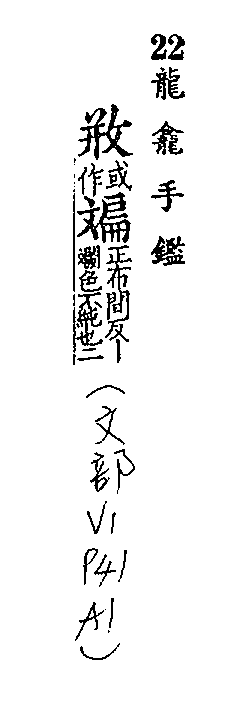 22龍龕手鑑
或作斒正布間反丨斕色不純也二(文部V1P41A1)